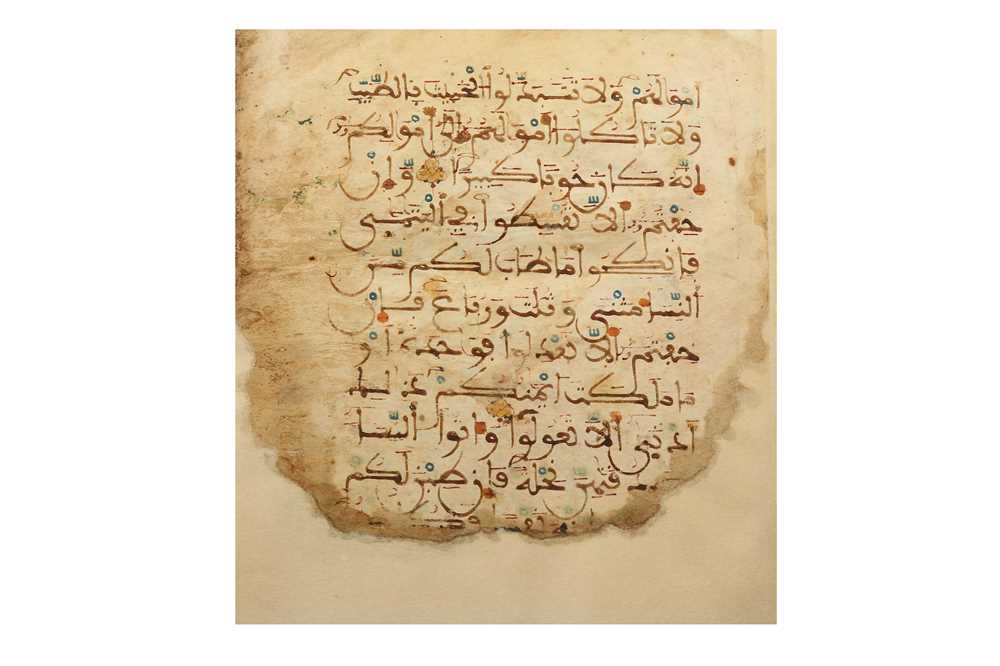 اَمْوَٰلَهُمْ وَلَا تَتَبَدَّلُوا۟ الْخَبِيثَ بِالطَّيِّبِ
وَلَا تَاكُلُوٓا۟ أَمْوَٰلَهُمُ إِلَىٰٓ أَمْوَٰلِكُمُ
إِنَّهُ كَانَ حُوبًا كَبِيرًا وَّإِنْ
خِفْتُمُ أَلَّا تُقْسِطُوا۟ فِي الْيَتَٰمَىٰ
فَانكِحُوا۟ مَا طَابَ لَكُم مِّنَ
النِّسَا مَثْنَىٰ وَثُلَٰثَ وَرُبَٰعَ فَإِنْ
خِفْتُمُ أَلَّا تَعْدِلُوا۟ فَوَٰحِدَةً اَوْ
مَا مَلَكَتَ اَيْمَٰنُكُمْ ذَٰلِكَ
أَدْنَىٰٓ أَلَّا تَعُولُوا۟ وَءَاتُوا۟ النِّسَا
نِحْلَةً فَإِن طِبْنَ لَكُمْ